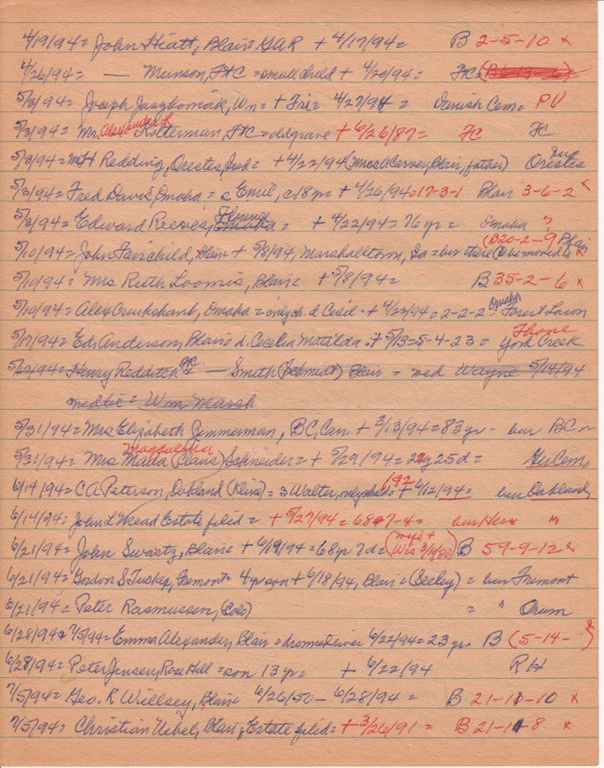 4/19/94 = John Hiatt, Blair GAR + 4/17/94 = B 2-5-10 x
4/26/94 = — Munson, FtC = small child + 4/20/94 = FC
5/3/94 = Joseph Wn = + Fri = 4/27/94 = Danish Cem = PV
5/3/94 = Mr. Alexander Kolterman, FtC = old grave + 6/26/87 = FC FC
5/3/94 = Redding, Orestes, Ind = + 4/22/94 (Mrs A Carver, Blair, father) Orestes Ind
5/3/94 = Fred Davis, Omaha = c Emil, a 18 yr = + 4/26/94 = 17-3-1 Blair 3-6-2 x
5/3/94 = Edward Reeves, Florence = + 4/22/94 = 76 yr = Omaha "
5/10/94 = John Fairchild, Blair + 5/8/94, Marshalltown, Ia = bur there (to be moved to B 20-2-9 Blair x
5/10/94 = Mrs Ruth Loomis, Blair + 5/8/94 = B 35-2-6 x
5/10/94 = Alex Cruikshank, Omaha = only ch. d Cecil = + 4/22/94 = 2-2-2 Forest Lawn
5/17/94 = Ed. Anderson, Blair = d. Cecelia Matilda + 5/13 = 5-4-23 = York Creek
5/24/94 = Henry Redditch — Smith (Schmidt) Blair = med Wayne 5/14/94
medtec = Wm Marsh
5/31/94 = Mrs Elizabeth Zimmerman, BC, Cem + 3/13/94 = 83 yr - bur BC
5/31/94 = Mrs Magdalena (Claus) Schneider = + 5/29/94 = 25d = Cem
6/14/94 = C.A. Peterson, Oakland = s Walter, only child = + 6/12/94 = bur Oakland
6/14/94 = John L Mead Estate filed = + 5/27/94 = 68 7-4 = bur Here "
6/21/94 = John Swartz, Blair + 6/19/94 = 68 yr 7d = B 59-9-12 x
6/21/94 = Gordon S Tucker, Fremont = 4 yr son + 6/18/94, Blair = (Seeley) = bur Fremont
6/21/94 = Peter Rasmussen, (Colo) = " Orum
6/28/94 & 7/5/94 = Emma Alexander, Blair = drowned river 6/22/94 = 23 yr. B (5-14- ) x
6/28/94 = Peter Jensen, Rose Hill = son 13 yr = + 6/22/94 RH
7/5/94 = Geo. R Willsey, Blair 6/26/50 – 6/28/94 = B 21-11-10 x
7/5/94 = Christian Uebel, Blair, Estate filed = + 3/26/91 = B 21-11-8 x